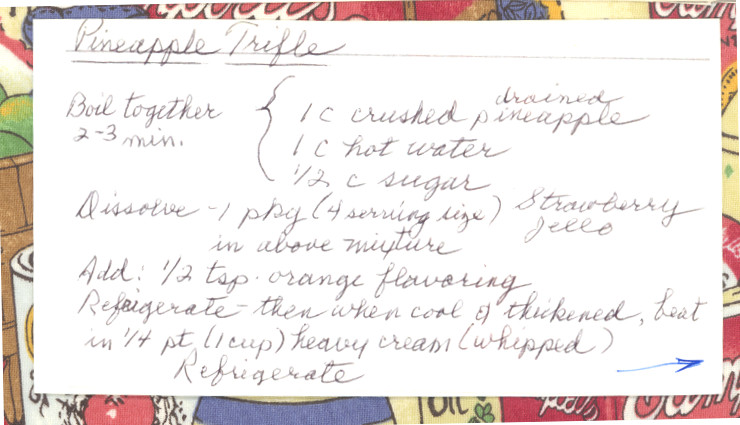 Pineapple Trifle
Boil together
2-3 min.
1 c crushed drained pineapple
1 c hot water
1/2 c sugar
Dissolve - 1 pkg (4 serving size) Strawberry Jello
in above mixture
Add: 1/2 tsp. orange flavoring
Refrigerate - then when cool & thickened, beat
in 1/4 pt. (1 cup) heavy cream (whipped)
Refrigerate